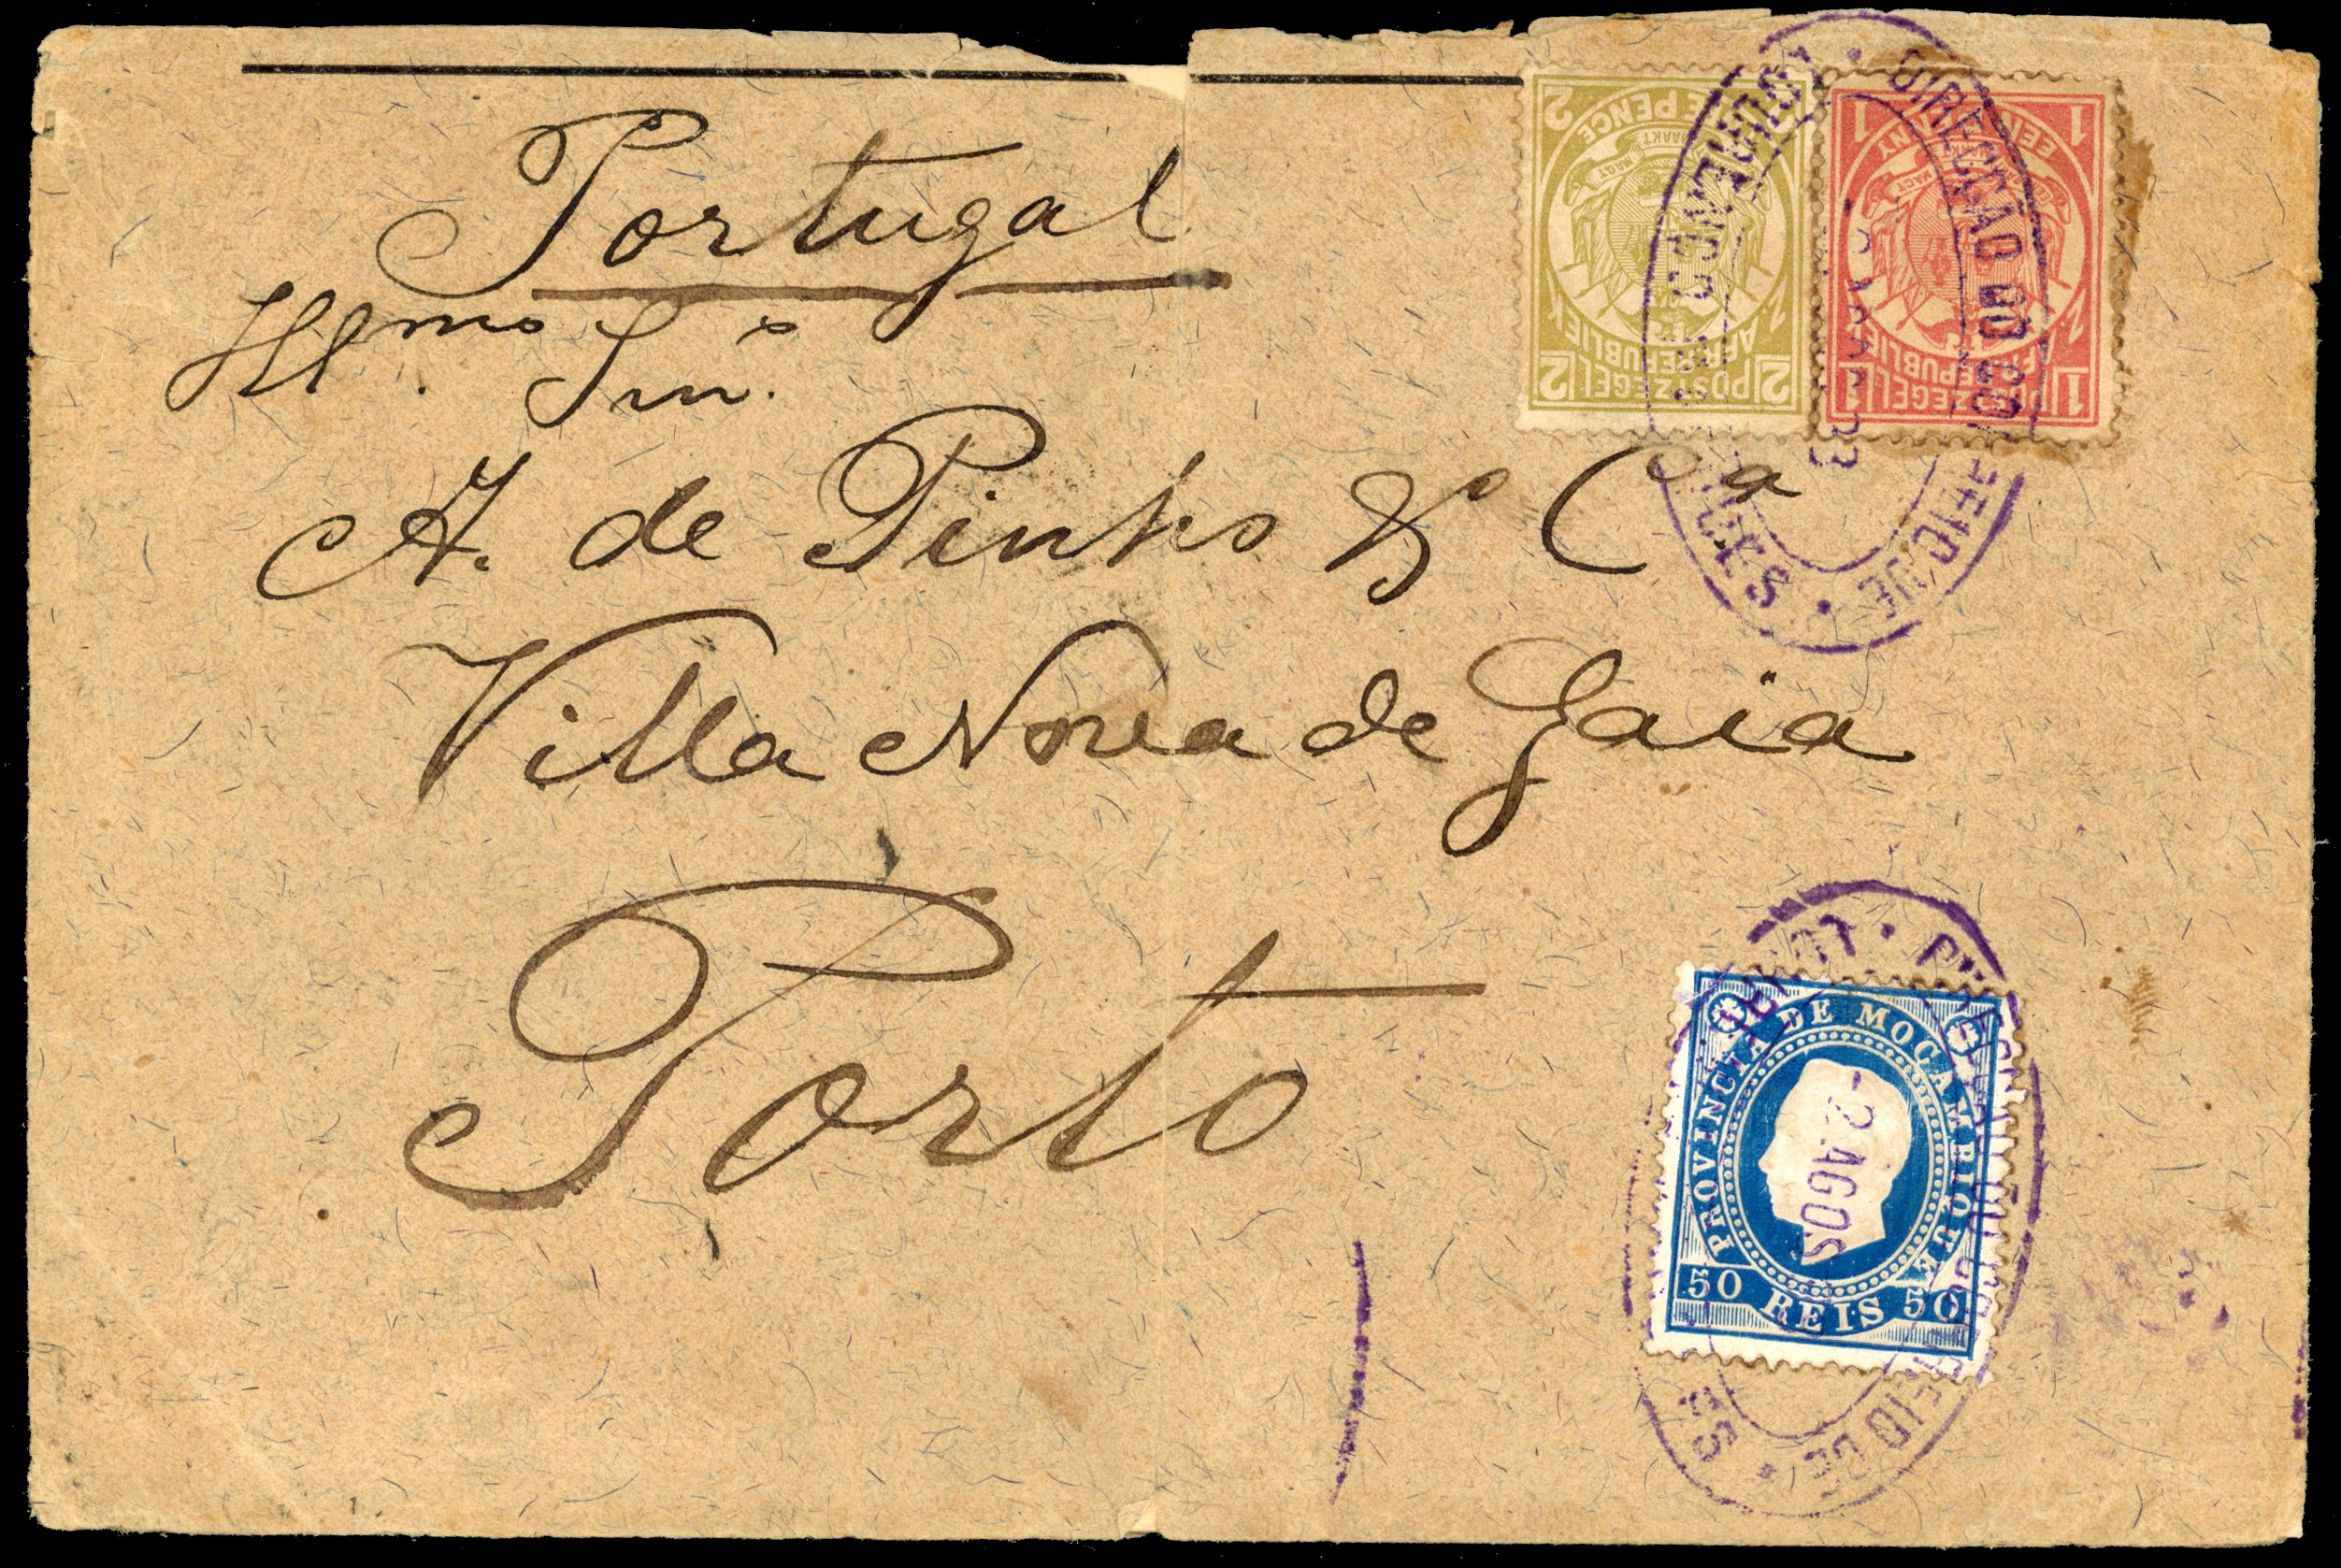 Portugal
Illmos Snrs
A. de Pinho & Ca
Villa Nova de Gaia
Porto
2 TWEE PENCE 2
EENDRAGT MAAKT MAGT
2 POSTZEGEL 2
Z. AFR. REPUBLIEK
1 EEN PENNY 1
MAGT
1 POSTZEGEL 1
Z. AFR. REPUBLIEK
DIRECÇÃO DO CORREIO DE
LOURENÇO MARQUES
PROVINCIA DE MOÇAMBIQUE
50 REIS 50
- 2 AGOS